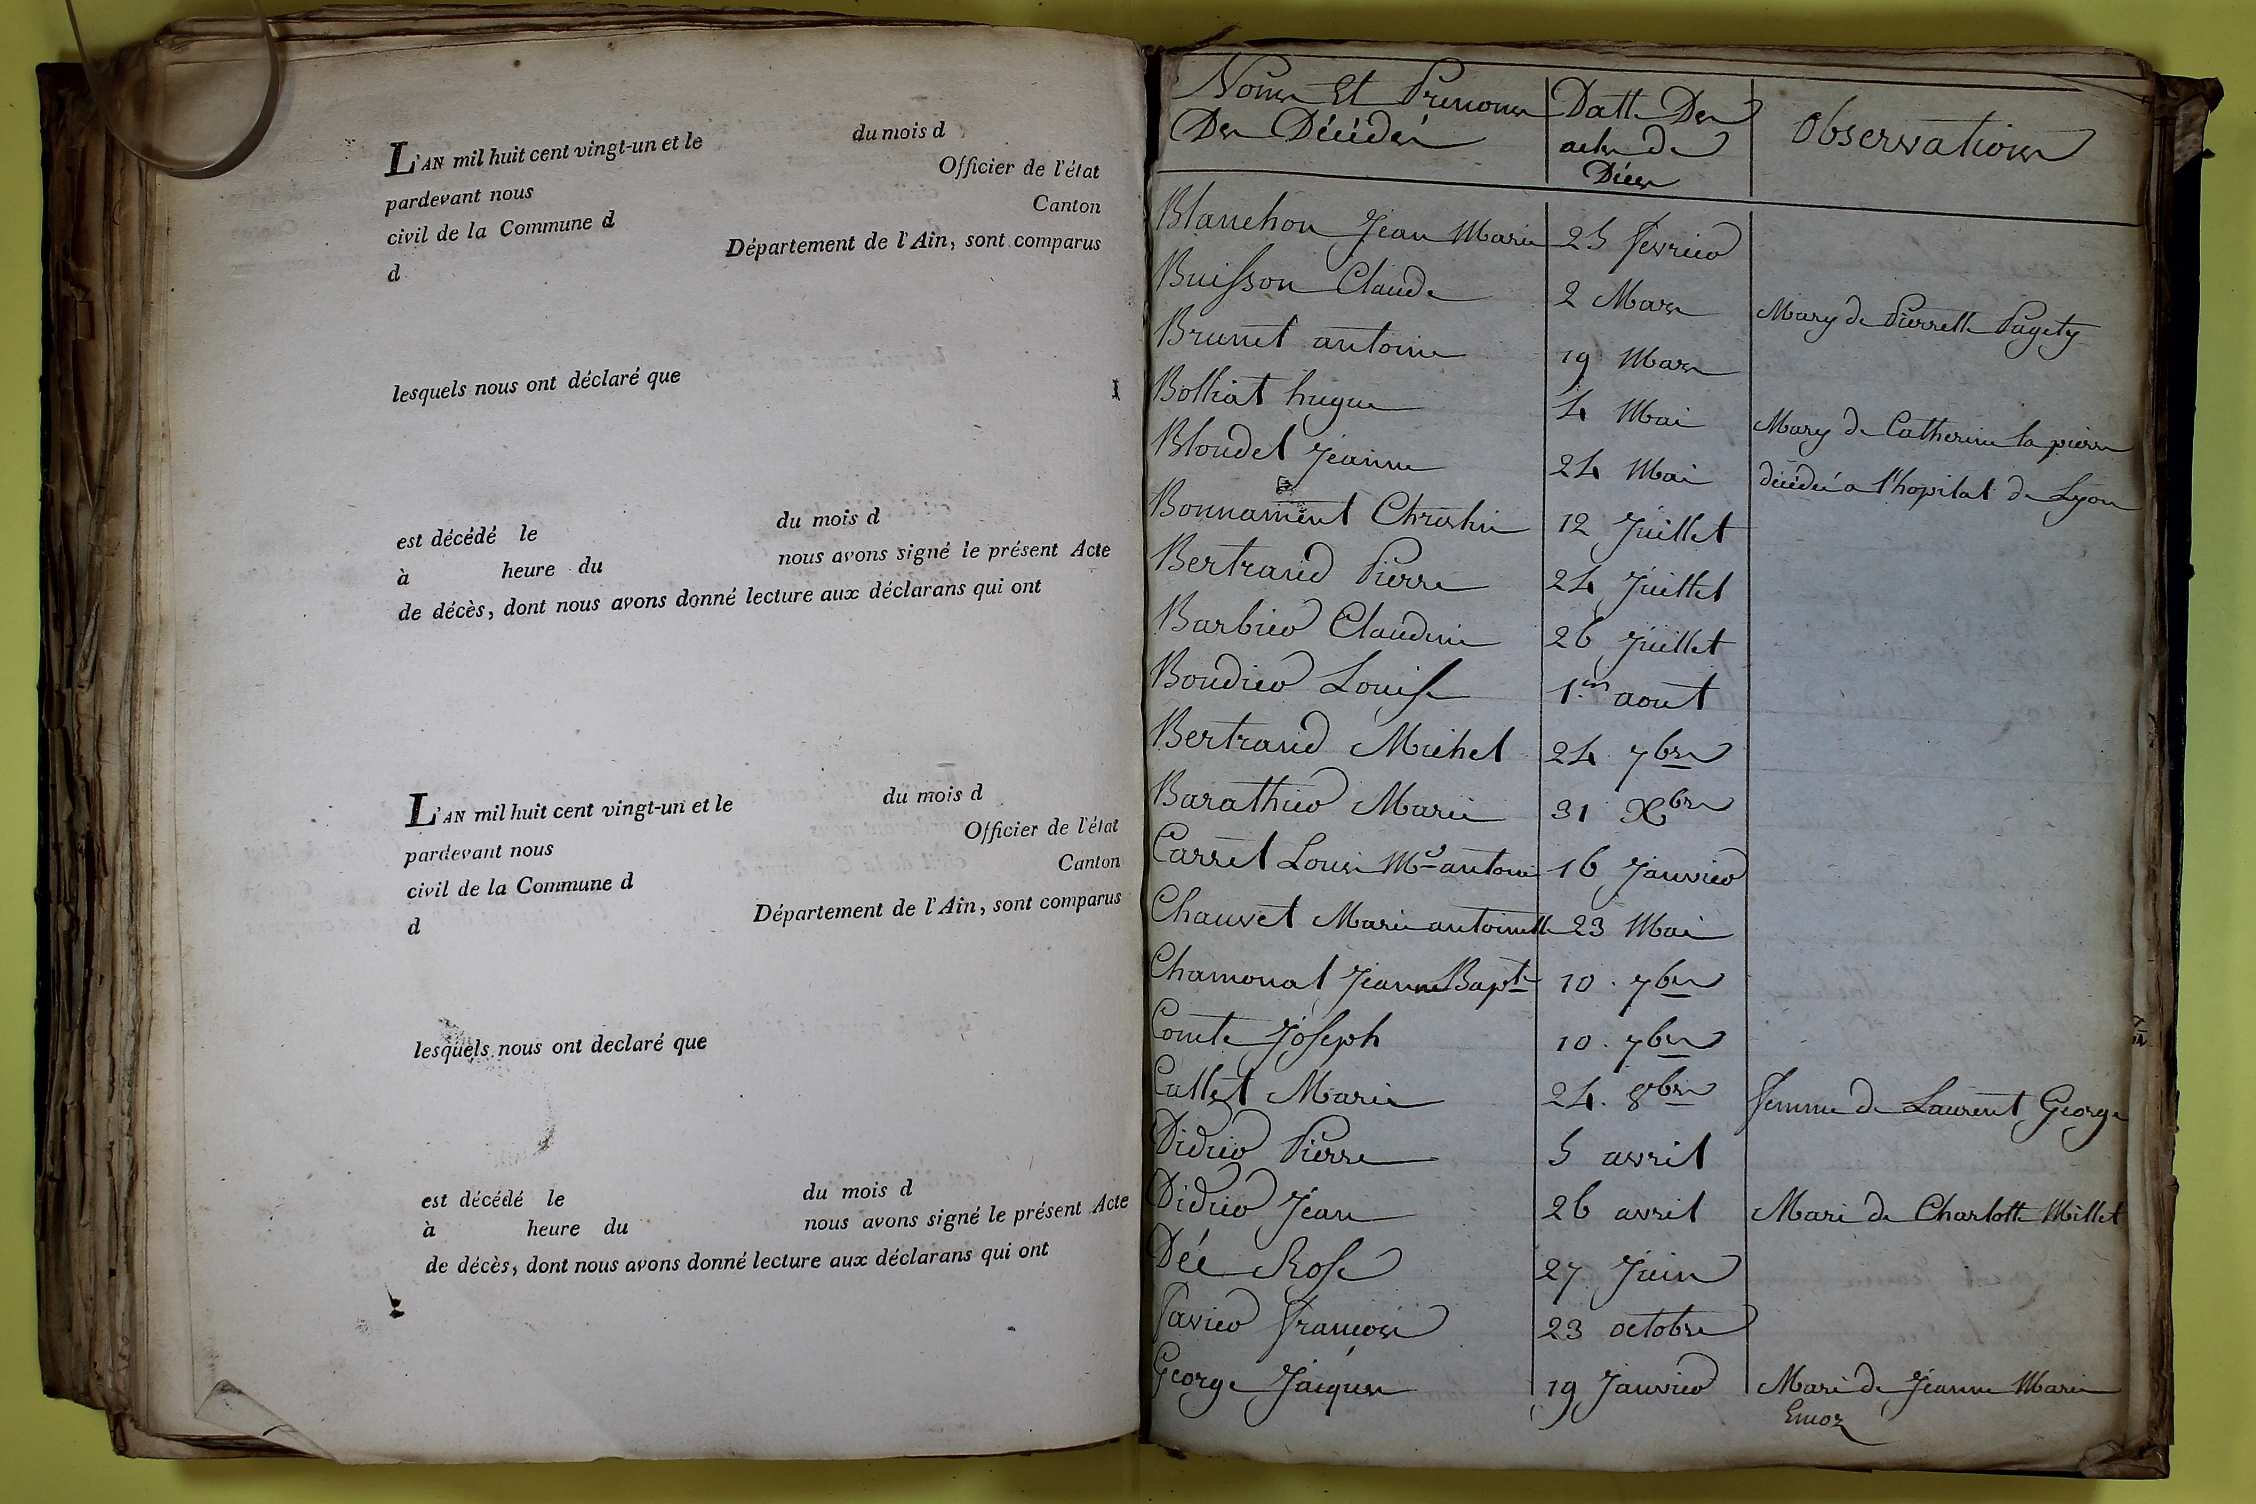 L'AN mil huit cent vingt-un et le du mois d
pardevant nous Officier de l'état
civil de la Commune d Canton
d Département de l'Ain, sont comparus
lesquels nous ont déclaré que
est décédé le du mois d
à heure du nous avons signé le présent Acte
de décès, dont nous avons donné lecture aux déclarans qui ont
L'AN mil huit cent vingt-un et le du mois d
pardevant nous Officier de l'état
civil de la Commune d Canton
d Département de l'Ain, sont comparus
lesquels nous ont declaré que
est décédé le du mois d
à heure du nous avons signé le présent Acte
de décès, dont nous avons donné lecture aux déclarans qui ont
Noms Et Prenoms Datte Des Observations
Des Décédés actes de
Décès
Blanchon Jean Marie 25 fevrier
Buisson Claude 2 Mars Mary de Pierrette Pagety
Brunet antoine 19 Mars
Bolliat hugue 4 Mai Mary de Catherine la pierre
Bloudel Jeanne 24 Mai décédé a l'hopital de Lyon
Bonnament Christin 12 Juillet
Bertrand Pierre 24 Juillet
Barbier Claudine 26 Juillet
Boudier Louise 1er aout
Bertrand Michel 24 7bre
Barathier Marie 31 Xbre
Carrel Louis Mie antoine 16 Janvier
Chauvet Marie antoinette 23 Mai
Chamonal Jeanne Bapte 10. 7bre
Comte Joseph 10. 7bre
Callet Marie 24. 8bre femme de Laurent George
Didier Pierre 5 avril
Didier Jean 26 avril Mari de Charlotte Millet
Déé Rose 27 Juin
favier françois 23 octobre
George Jacques 19 Janvier Mari de Jeanne Marie